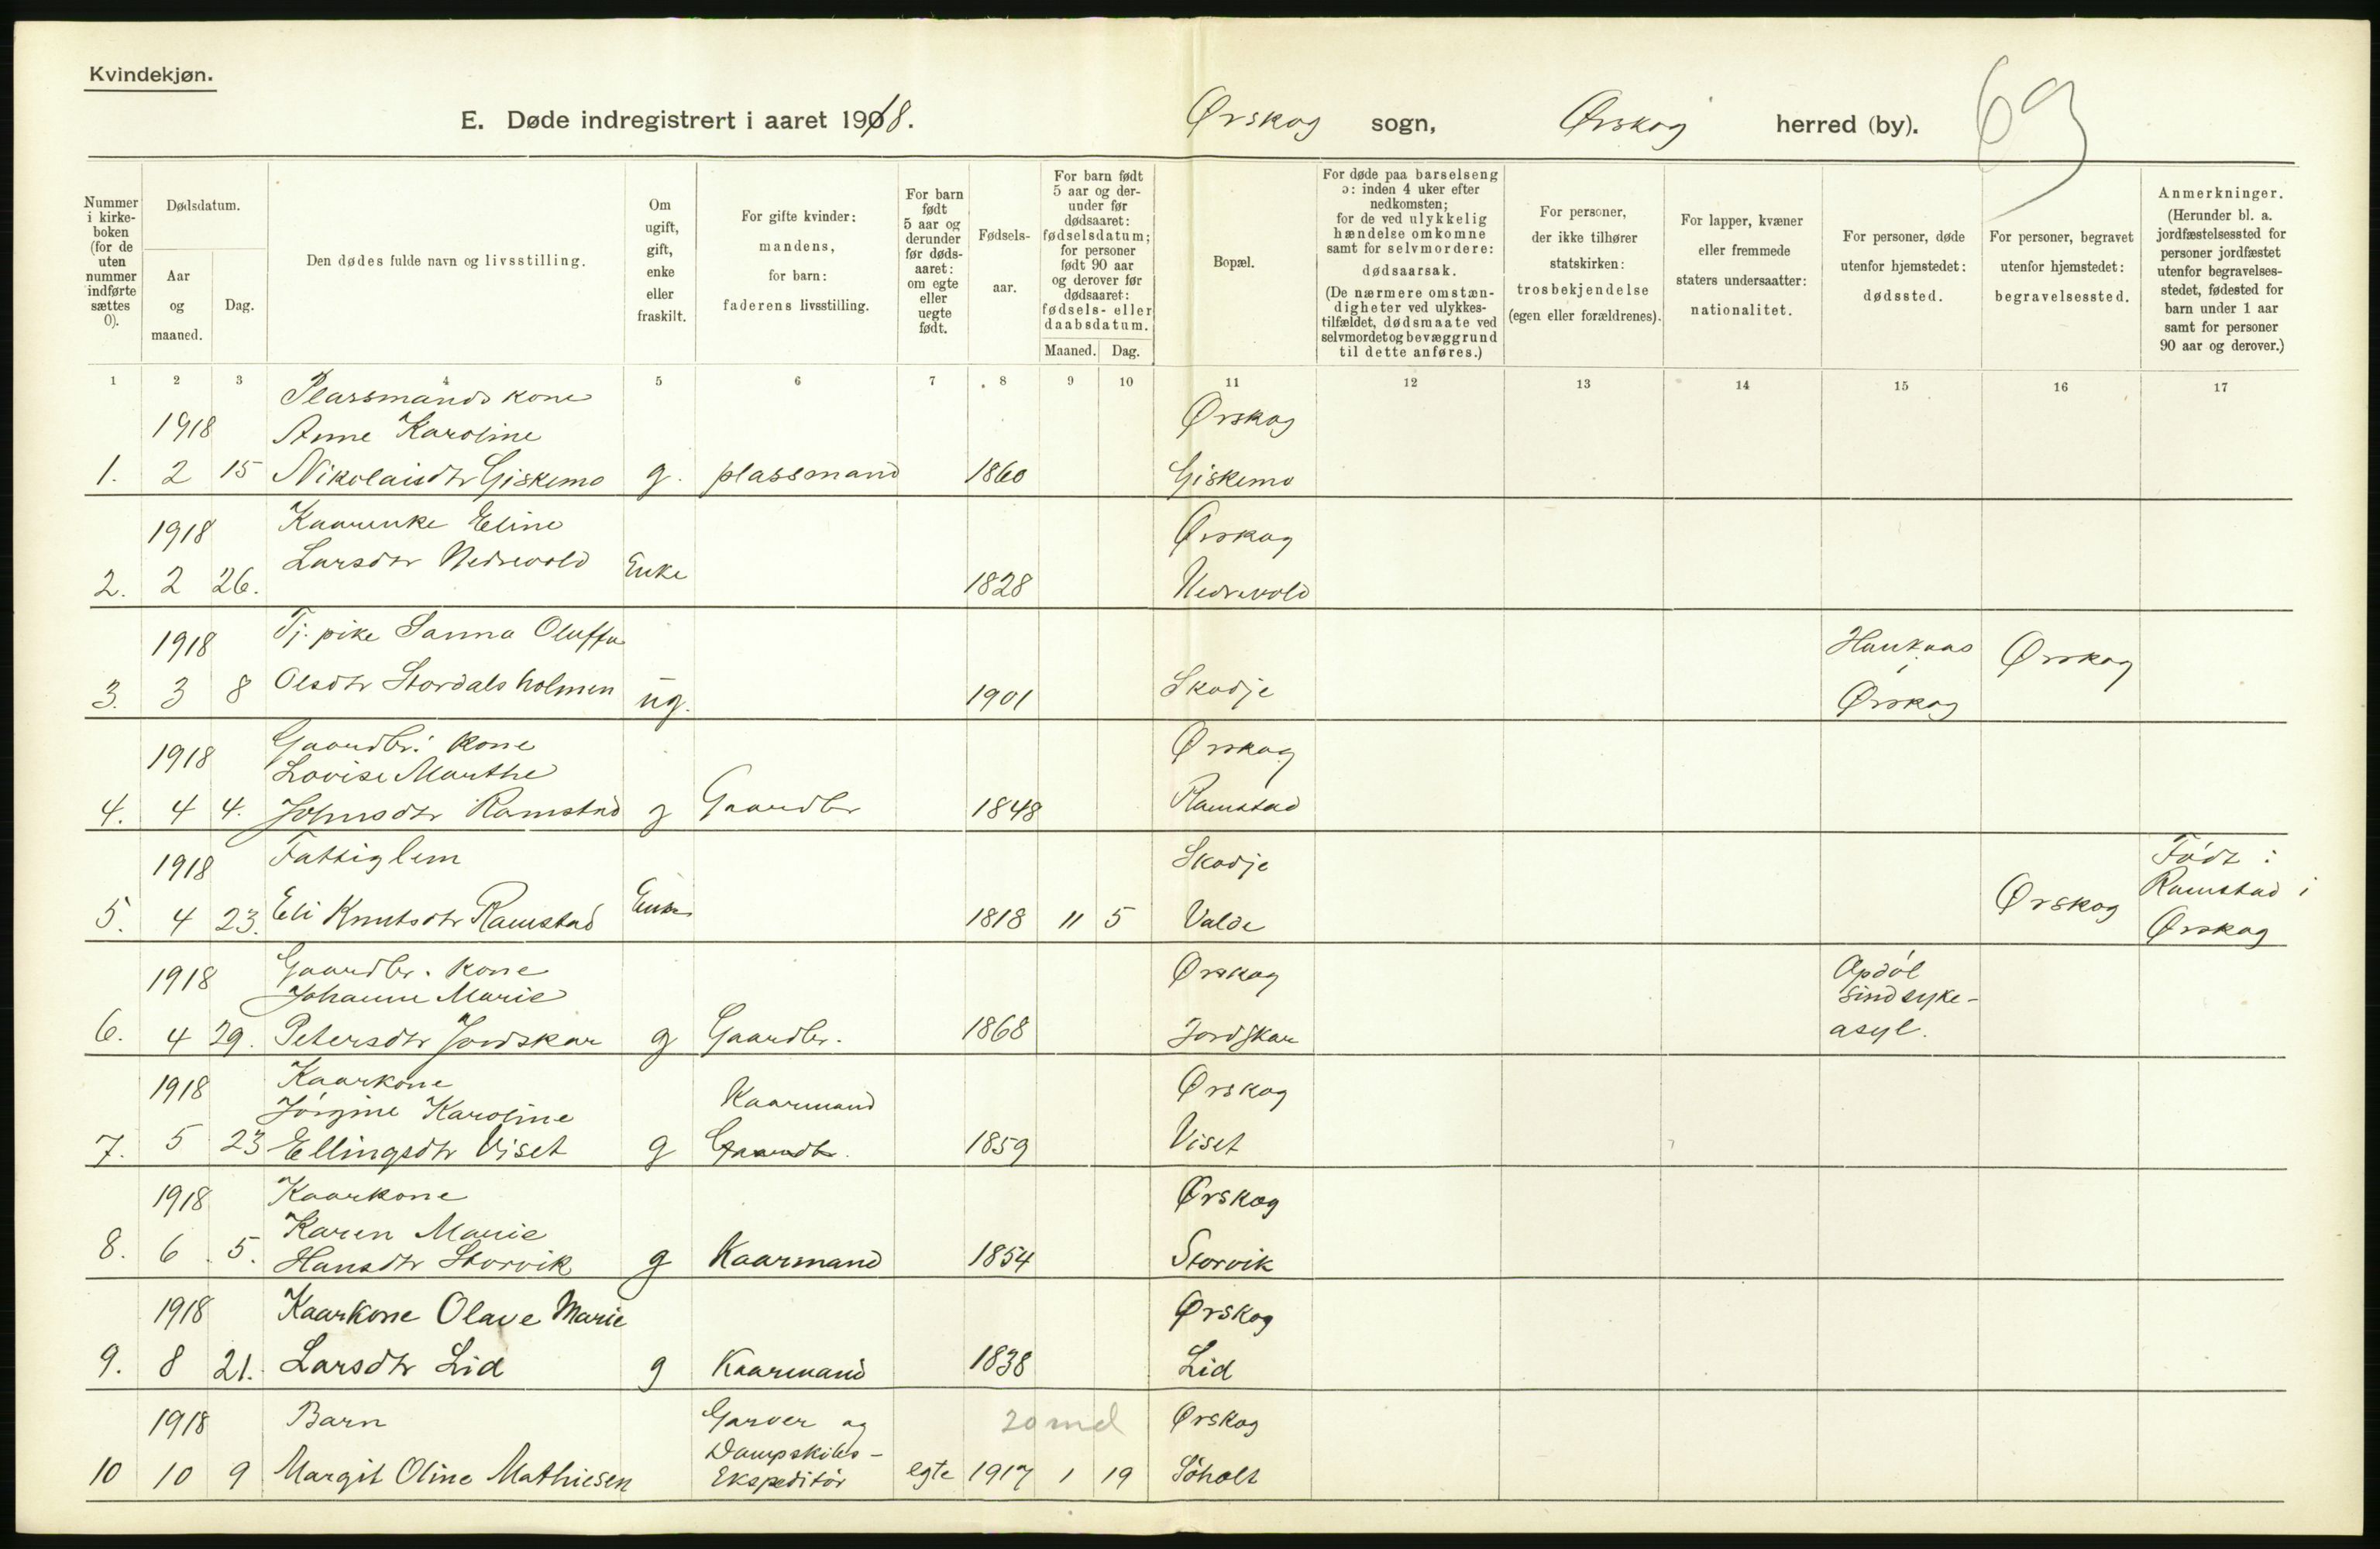 Kvindekjøn.
E. Døde indregistrert i aaret 1918.
Ørskog sogn, Ørskog herred (by).
69
Nummer i kirke-boken (for de uten nummer indførte sættes 0).
Dødsdatum.
Aar og maaned.
Dag.
Den dødes fulde navn og livsstilling.
Om ugift, gift, enke eller fraskilt.
For gifte kvinder: mandens, for barn: faderens livsstilling.
For barn født 5 aar og derunder før døds-aaret: om egte eller uegte født.
Fødsels-aar.
For barn født 5 aar og der-under før dødsaaret: fødselsdatum; for personer født 90 aar og derover før dødsaaret: fødsels- eller daabsdatum.
Maaned. Dag.
Bopæl.
For døde paa barselseng ɔ: inden 4 uker efter nedkomsten; for de ved ulykkelig hændelse omkomne samt for selvmordere: dødsaarsak. (De nærmere omstæn-digheter ved ulykkes-tilfældet, dødsmaate ved selvmordet og bevæggrund til dette anføres.)
For personer, der ikke tilhører statskirken: trosbekjendelse (egen eller forældrenes).
For lapper, kvæner eller fremmede staters undersaatter: nationalitet.
For personer, døde utenfor hjemstedet: dødssted.
For personer, begravet utenfor hjemstedet: begravelsessted.
Anmerkninger. (Herunder bl. a. jordfæstelsessted for personer jordfæstet utenfor begravelses-stedet, fødested for barn under 1 aar samt for personer 90 aar og derover.)
1 2 3 4 5 6 7 8 9 10 11 12 13 14 15 16 17
Plassmands kone
1918 Anne Karoline Ørskog
1. 2 15 Nikolaisdtr Giskemo g. plassmand 1860 Giskemo
1918 Kaarenke Eline Ørskog
Larsdtr Nedrevold Enke
2. 2 26. 1828 Nedrevold
1918 Tj. pike Sanna Oluffa Ørskog
3. 3 8 Olsdtr Stordalsholmen ug. 1901 Skodje i Ørskog
Gaardbr. kone Ørskog
1918 Lovise Marthe
4. 4 4. Johnsdtr Ramstad g Gaardbr 1848 Ramstad
1918 Fattiglem Skodje Født:
5. 4 23. Eli Knutsdtr Ramstad Enke 1818 11 5 Valde Ørskog Ramstad i Ørskog
Gaardbr. kone Ørskog Opdøl
1918 Johanne Marie sindsyke-
6. 4 29. Petersdtr Jordskar g Gaardbr. 1868 Jordskar asyl.
1918 Kaarkone Ørskog
Jørgine Karoline Kaarmand
7. 5 23 Ellingsdtr Viset g Gaardbr. 1859 Viset
1918 Kaarkone Ørskog
Karen Marie
8. 6 5. Hansdtr Storvik g Kaarmand 1854 Storvik
1918 Kaarkone Olave Marie Ørskog
9. 8 21. Larsdtr Lid g Kaarmand 1838 Lid
1918 Barn Garver og 20 md Ørskog
Dampskibs-
10 10 9 Margit Oline Mathiesen Ekspeditør egte 1917 1 19 Søholt